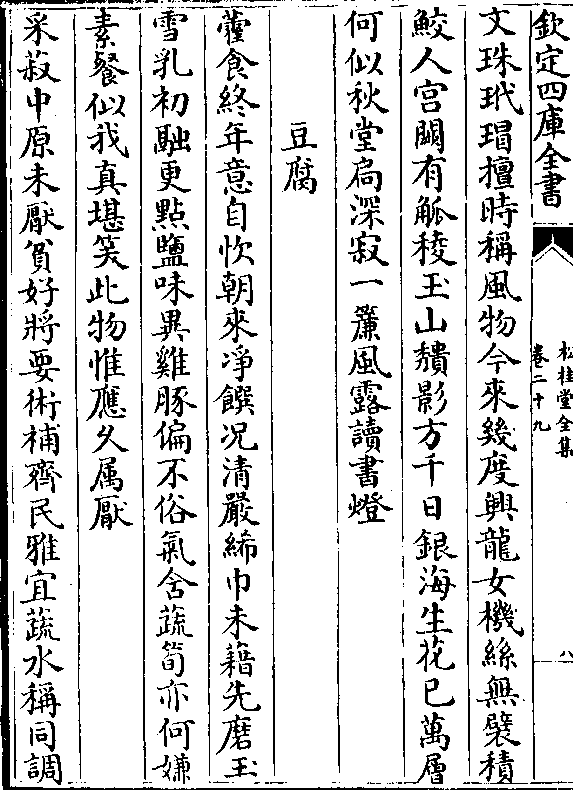 欽定四庫全書
松桂堂全集
卷二十九
八
文珠玳瑁擅時稱風物今來幾度興龍女機絲無襞積
鮫人宮闕有觚稜玉山頹影方千日銀海生花已萬層
何似秋堂扃深寂一簾風露讀書燈
豆腐
藿食終年意自忺朝來凈饌况清嚴絺巾未藉先磨玉
雪乳初融更點鹽味異雞豚偏不俗氣含蔬筍亦何嫌
素餐似我真堪笑此物惟應久属厭
采菽中原未厭貧好將要術補齊民雅宜蔬水稱同調